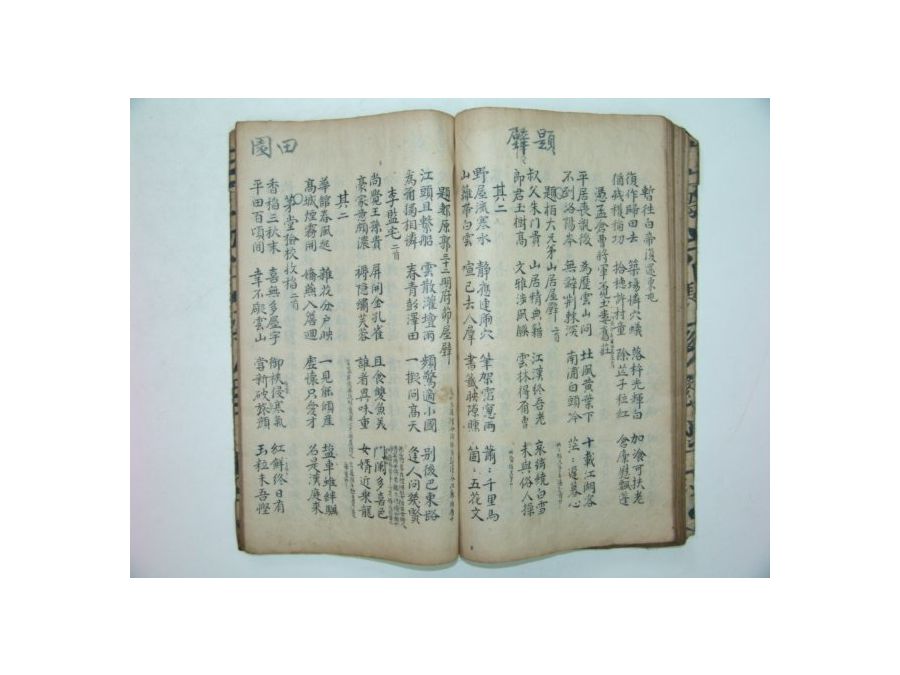 題壁
暫往白帝復還東屯
復作歸田去 築場憐穴蟻 落杵光輝白 加飡可扶老
猶殘穫稻功 拾穗許村童 除芒子粒紅 倉庾慰飄蓬
憑孟倉曹將軍 土婁舊莊
平居喪亂後 為歷雲山問 北風黃葉下 十載江湖客
不到洛陽岑 無辭荊棘深 南浦白頭冷 茫:遲暮心
題柏大兄弟山居屋壁 二首
叔父朱門貴 山居精典籍 江漢終吾老 哀絃繞白雪
郎君玉樹高 文雅涉風騷 雲林得爾曹 未與俗人操
其二
野屋流寒水 靜應連虎穴 筆架霑窓雨 蕭:千里馬
山籬帶白雲 喧已去人群 書籤映隙曛 箇:五花文
田園
題郪原郭三十二明府茆屋壁
江頭且繫船 雲散灌壇雨 頻驚適小國 別後巴東路
為爾獨相憐 春青彭澤田 一擬問高天 逢人問幾賢
李監宅 二首
尚覺王孫貴 屏開金孔雀 且食雙魚美 門闌多喜色
豪家意頗濃 褥隱繡芙蓉 誰看異味重 女婿近乘龍
其二
華館春風起 雜花分戶映 一見能傾產 鹽車雖絆驥
高城煙霧開 嬌燕入簷迴 虛懷只愛才 名是漢庭來
茅堂檢校收稻 二首
香稻三秋末 喜無多屋宇 御裌侵寒氣 紅鮮終日有
平田百頃間 幸不礙雲山 嘗新破旅顏 玉粒未吾慳